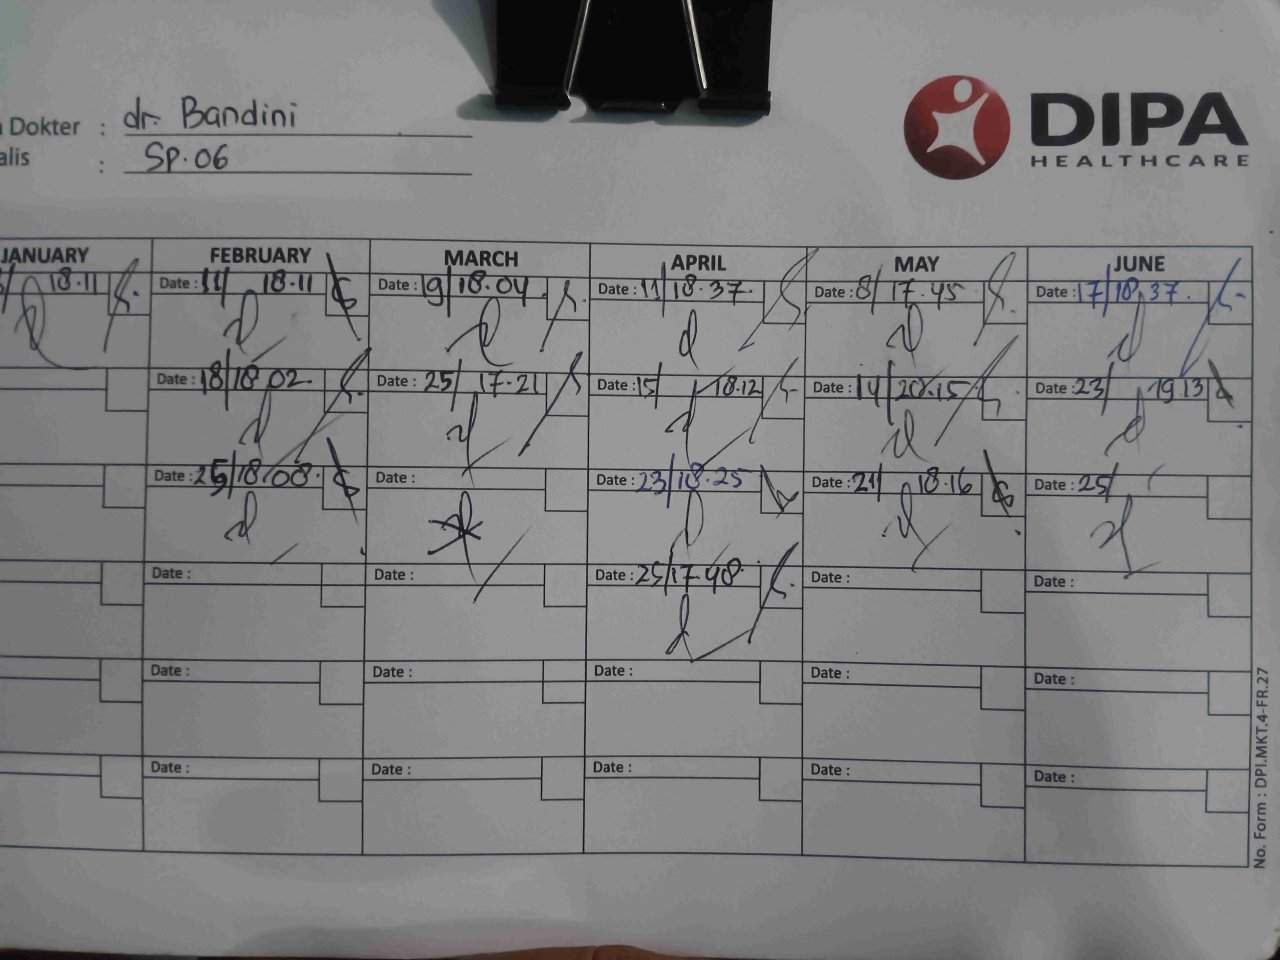 Dokter : dr. Bandini
alis : Sp. OG
DIPA
HEALTHCARE
JANUARY FEBRUARY MARCH APRIL MAY JUNE
18.11 Date : 11/ 18.11 Date : 19/18.04 Date : 11/18.37 Date : 8/ 17.45 Date : 17/18.37
Date : 18/18.02 Date : 25/ 17.21 Date : 15/ 18.12 Date : 14/20.15 Date : 23/ 19.13
Date : 25/18.08 Date : Date : 23/18.25 Date : 21/ 18.16 Date : 25/
Date : Date : Date : 25/17.48 Date : Date :
Date : Date : Date : Date : Date :
Date : Date : Date : Date : Date :
No. Form : DPI.MKT.4-FR.27